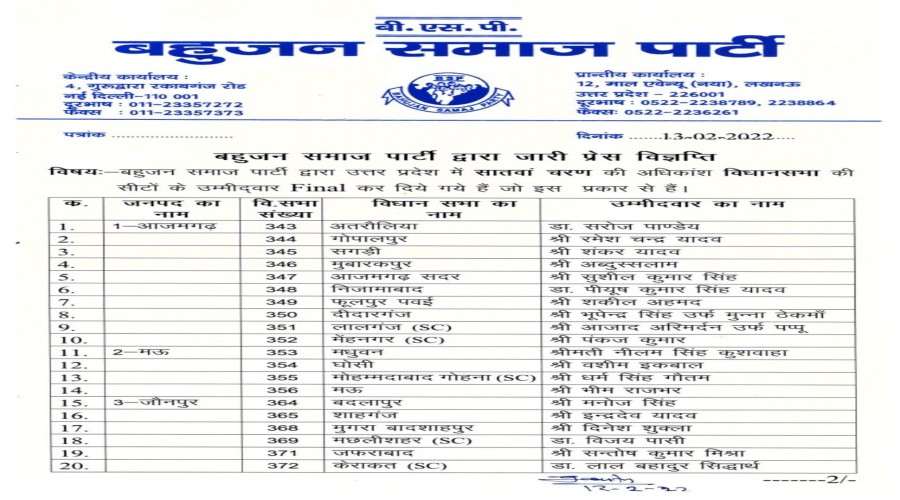 बी. एस. पी.
बहुजन समाज पार्टी
केन्द्रीय कार्यालय :
4, गुरूद्वारा रकाबगंज रोड
नई दिल्ली-110 001
दूरभाष : 011-23357272
फैक्स : 011-23357373
BSP
BAHUJAN SAMAJ PARTY
प्रान्तीय कार्यालय :
12, माल एवेन्यू (नया), लखनऊ
उत्तर प्रदेश - 226001
दूरभाष : 0522-2238789, 2238864
फैक्सः 0522-2236261
पत्रांक ..............................
दिनांक ......13-02-2022......
बहुजन समाज पार्टी द्वारा जारी प्रेस विज्ञप्ति
विषयः-बहुजन समाज पार्टी द्वारा उत्तर प्रदेश में सातवां चरण की अधिकांश विधानसभा की
सीटों के उम्मीद्वार Final कर दिये गये हैं जो इस प्रकार से हैं।
क. जनपद का नाम वि.सभा संख्या विधान सभा का नाम उम्मीदवार का नाम
1. 1-आजमगढ़ 343 अतरौलिया डा. सरोज पाण्डेय
2. 344 गोपालपुर श्री रमेश चन्द्र यादव
3. 345 सगड़ी श्री शंकर यादव
4. 346 मुबारकपुर श्री अब्दुस्सलाम
5. 347 आजमगढ़ सदर श्री सुशील कुमार सिंह
6. 348 निजामाबाद डा. पीयूष कुमार सिंह यादव
7. 349 फूलपुर पवई श्री शकील अहमद
8. 350 दीदारगंज श्री भूपेन्द्र सिंह उर्फ मुन्ना ठेकमाँ
9. 351 लालगंज (SC) श्री आजाद अरिमर्दन उर्फ पप्पू
10. 352 मेंहनगर (SC) श्री पंकज कुमार
11. 2-मऊ 353 मधुवन श्रीमती नीलम सिंह कुशवाहा
12. 354 घोसी श्री वशीम इकबाल
13. 355 मोहम्मदाबाद गोहना (SC) श्री धर्म सिंह गौतम
14. 356 मऊ श्री भीम राजभर
15. 3-जौनपुर 364 बदलापुर श्री मनोज सिंह
16. 365 शाहगंज श्री इन्द्रदेव यादव
17. 368 मुगरा बादशाहपुर श्री दिनेश शुक्ला
18. 369 मछलीशहर (SC) डा. विजय पासी
19. 371 जफराबाद श्री सन्तोष कुमार मिश्रा
20. 372 केराकत (SC) डा. लाल बहादुर सिद्धार्थ
-------2/-
13-2-22